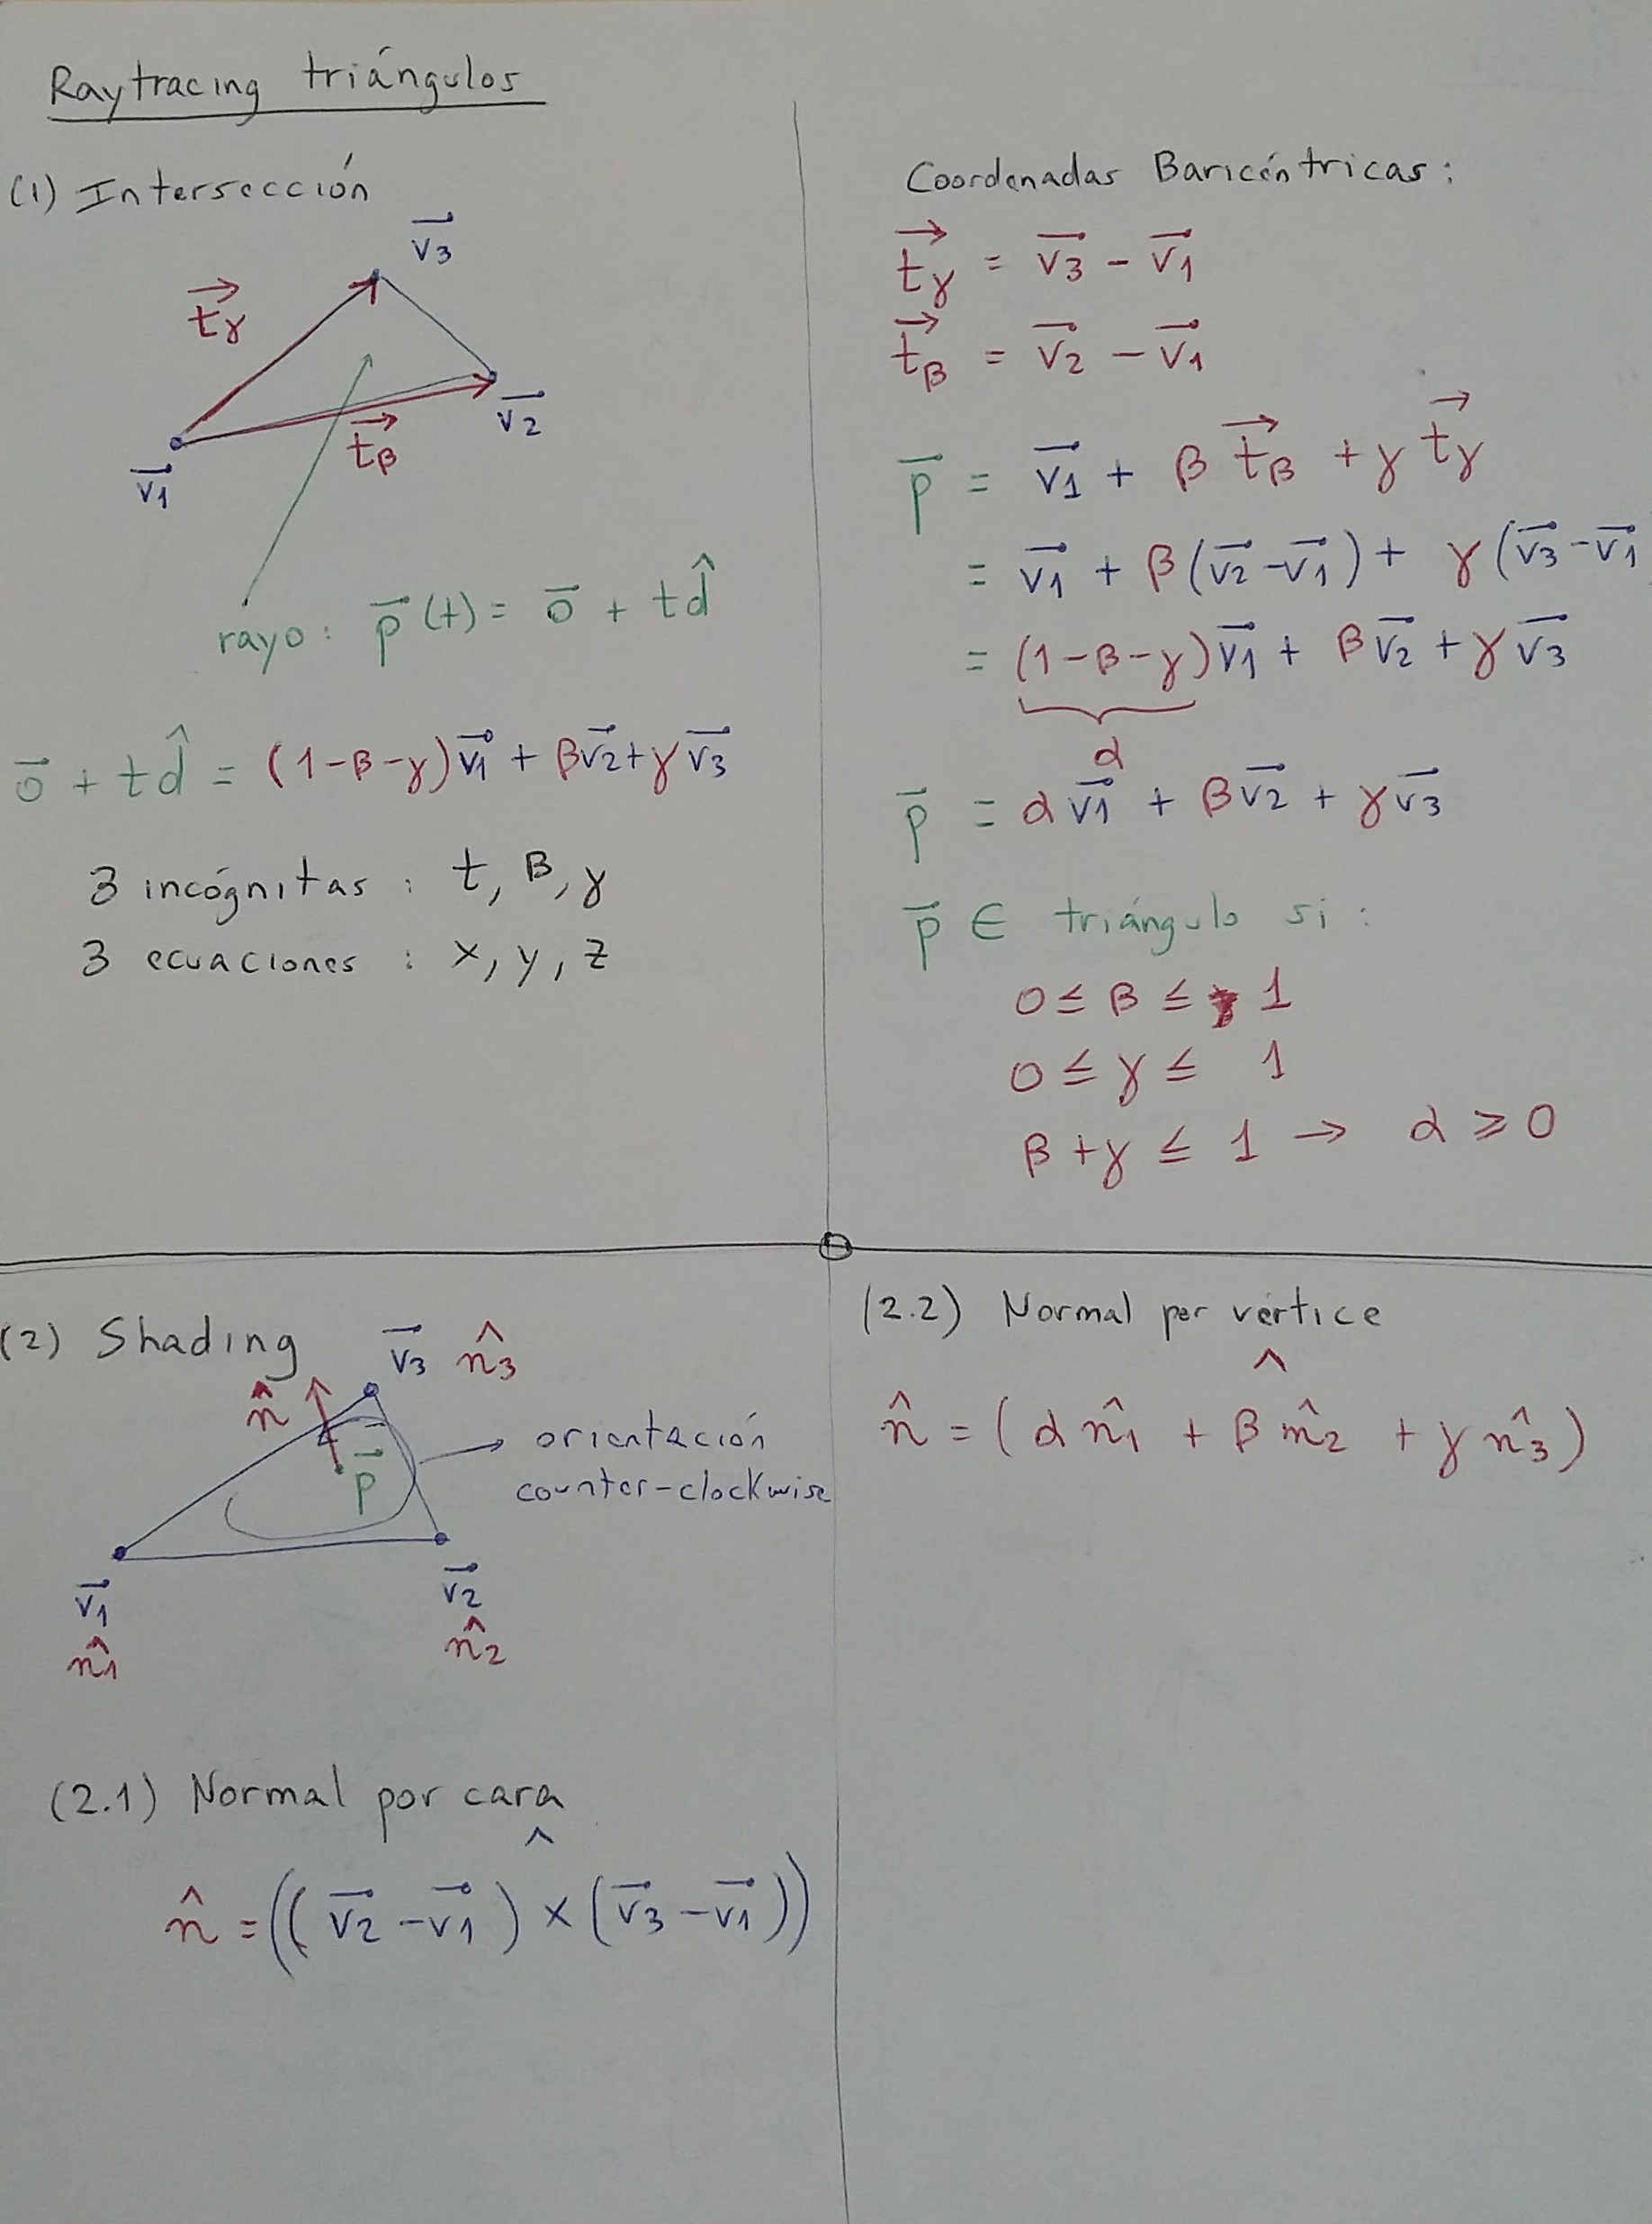 Raytracing triángulos
(1) Intersección
v⃗3
t⃗γ
v⃗2
t⃗β
v⃗1
rayo: p⃗(t) = o⃗ + t d̂
o⃗ + t d̂ = (1-β-γ)v⃗1 + βv⃗2 + γv⃗3
3 incógnitas : t, β, γ
3 ecuaciones : x, y, z
Coordenadas Baricéntricas:
t⃗γ = v⃗3 - v⃗1
t⃗β = v⃗2 - v⃗1
p⃗ = v⃗1 + β t⃗β + γ t⃗γ
= v⃗1 + β(v⃗2 - v⃗1) + γ(v⃗3 - v⃗1
= (1-β-γ)v⃗1 + βv⃗2 + γv⃗3
α
p⃗ = αv⃗1 + βv⃗2 + γv⃗3
p⃗ ∈ triángulo si:
0 ≤ β ≤ 1
0 ≤ γ ≤ 1
β + γ ≤ 1 → α ≥ 0
(2) Shading
v⃗3 n̂3
n̂
p⃗
orientación
counter-clockwise
v⃗1
n̂1
v⃗2
n̂2
(2.1) Normal por cara
^
n̂ = ((v⃗2 - v⃗1) × (v⃗3 - v⃗1))
(2.2) Normal por vértice
^
n̂ = (α n̂1 + β n̂2 + γ n̂3)